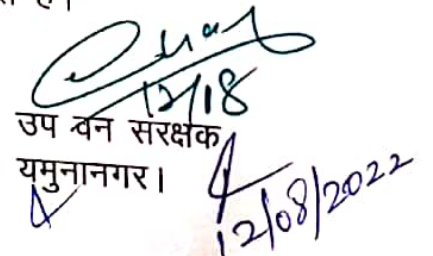 12/18
उप वन संरक्षक
यमुनानगर।
12/08/2022